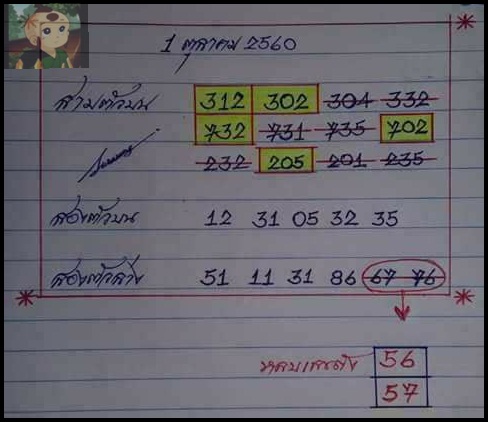 1 ตุลาคม 2560
สามตัวบน 312 302 304 332
732 731 735 702
232 205 201 235
สองตัวบน 12 31 05 32 35
สองตัวล่าง 51 11 31 86 67 76
56
57